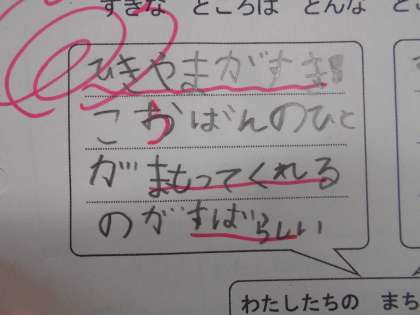 すきな ところは どんな とこ
ひきやまがすき
こおばんのひと
がまもってくれる
のがすばらしい
わたしたちの まち